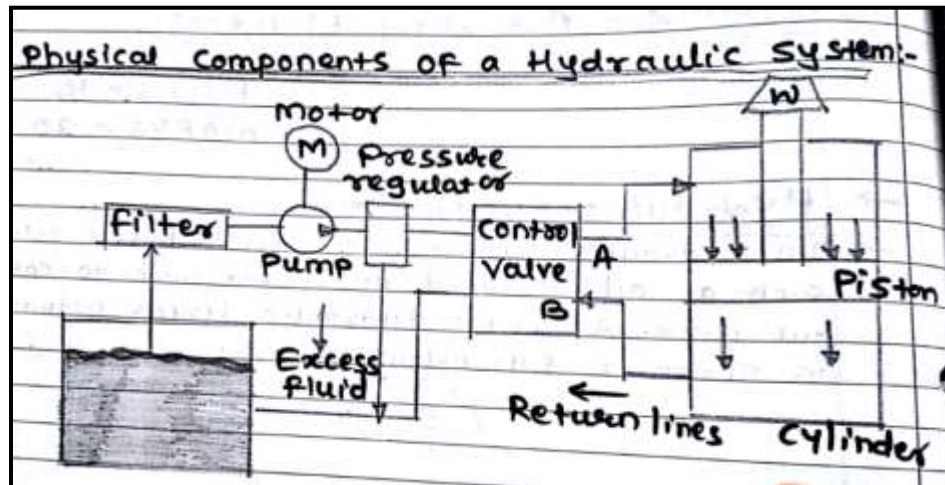 Physical Components of a Hydraulic System:-
W
Motor
M
Pressure
regulator
filter
Pump
Control
Valve
A
B
Piston
Excess
fluid
Return lines
Cylinder